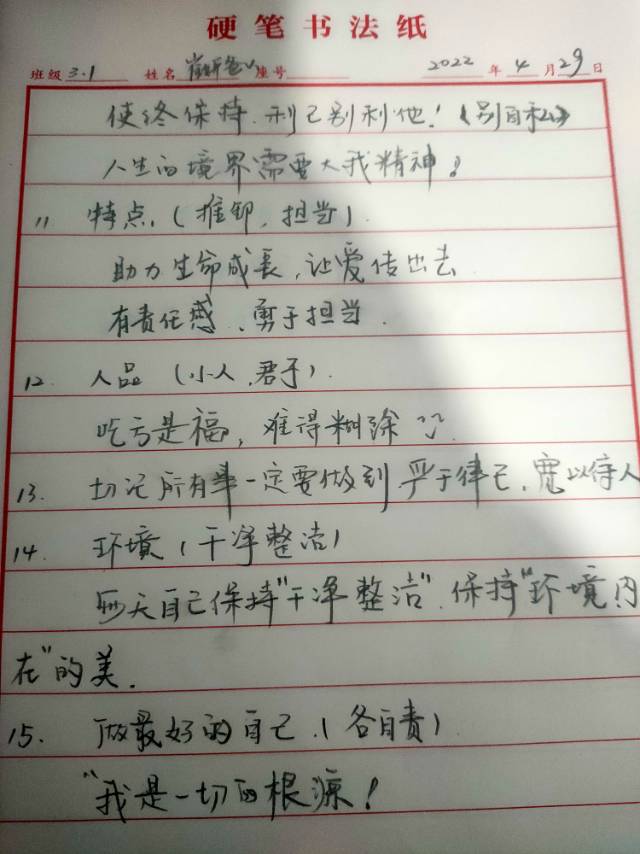 硬笔书法纸
班级 3.1 姓名 座号 2022 年 4 月 29 日
使终保持.利己别利他!(别自私)
人生的境界需要大我精神!
11 特点.(推卸,担当).
助力生命成长,让爱传出去
有责任感、勇于担当.
12. 人品(小人.君子).
吃亏是福,难得糊除
13. 切记所有一定要做到严于律己.宽以待人
14. 环境(干净整洁)
每天自己保持"干净整洁".保持"环境内
在"的美.
15. 做最好的自己.(各自责)
"我是一切的根源!